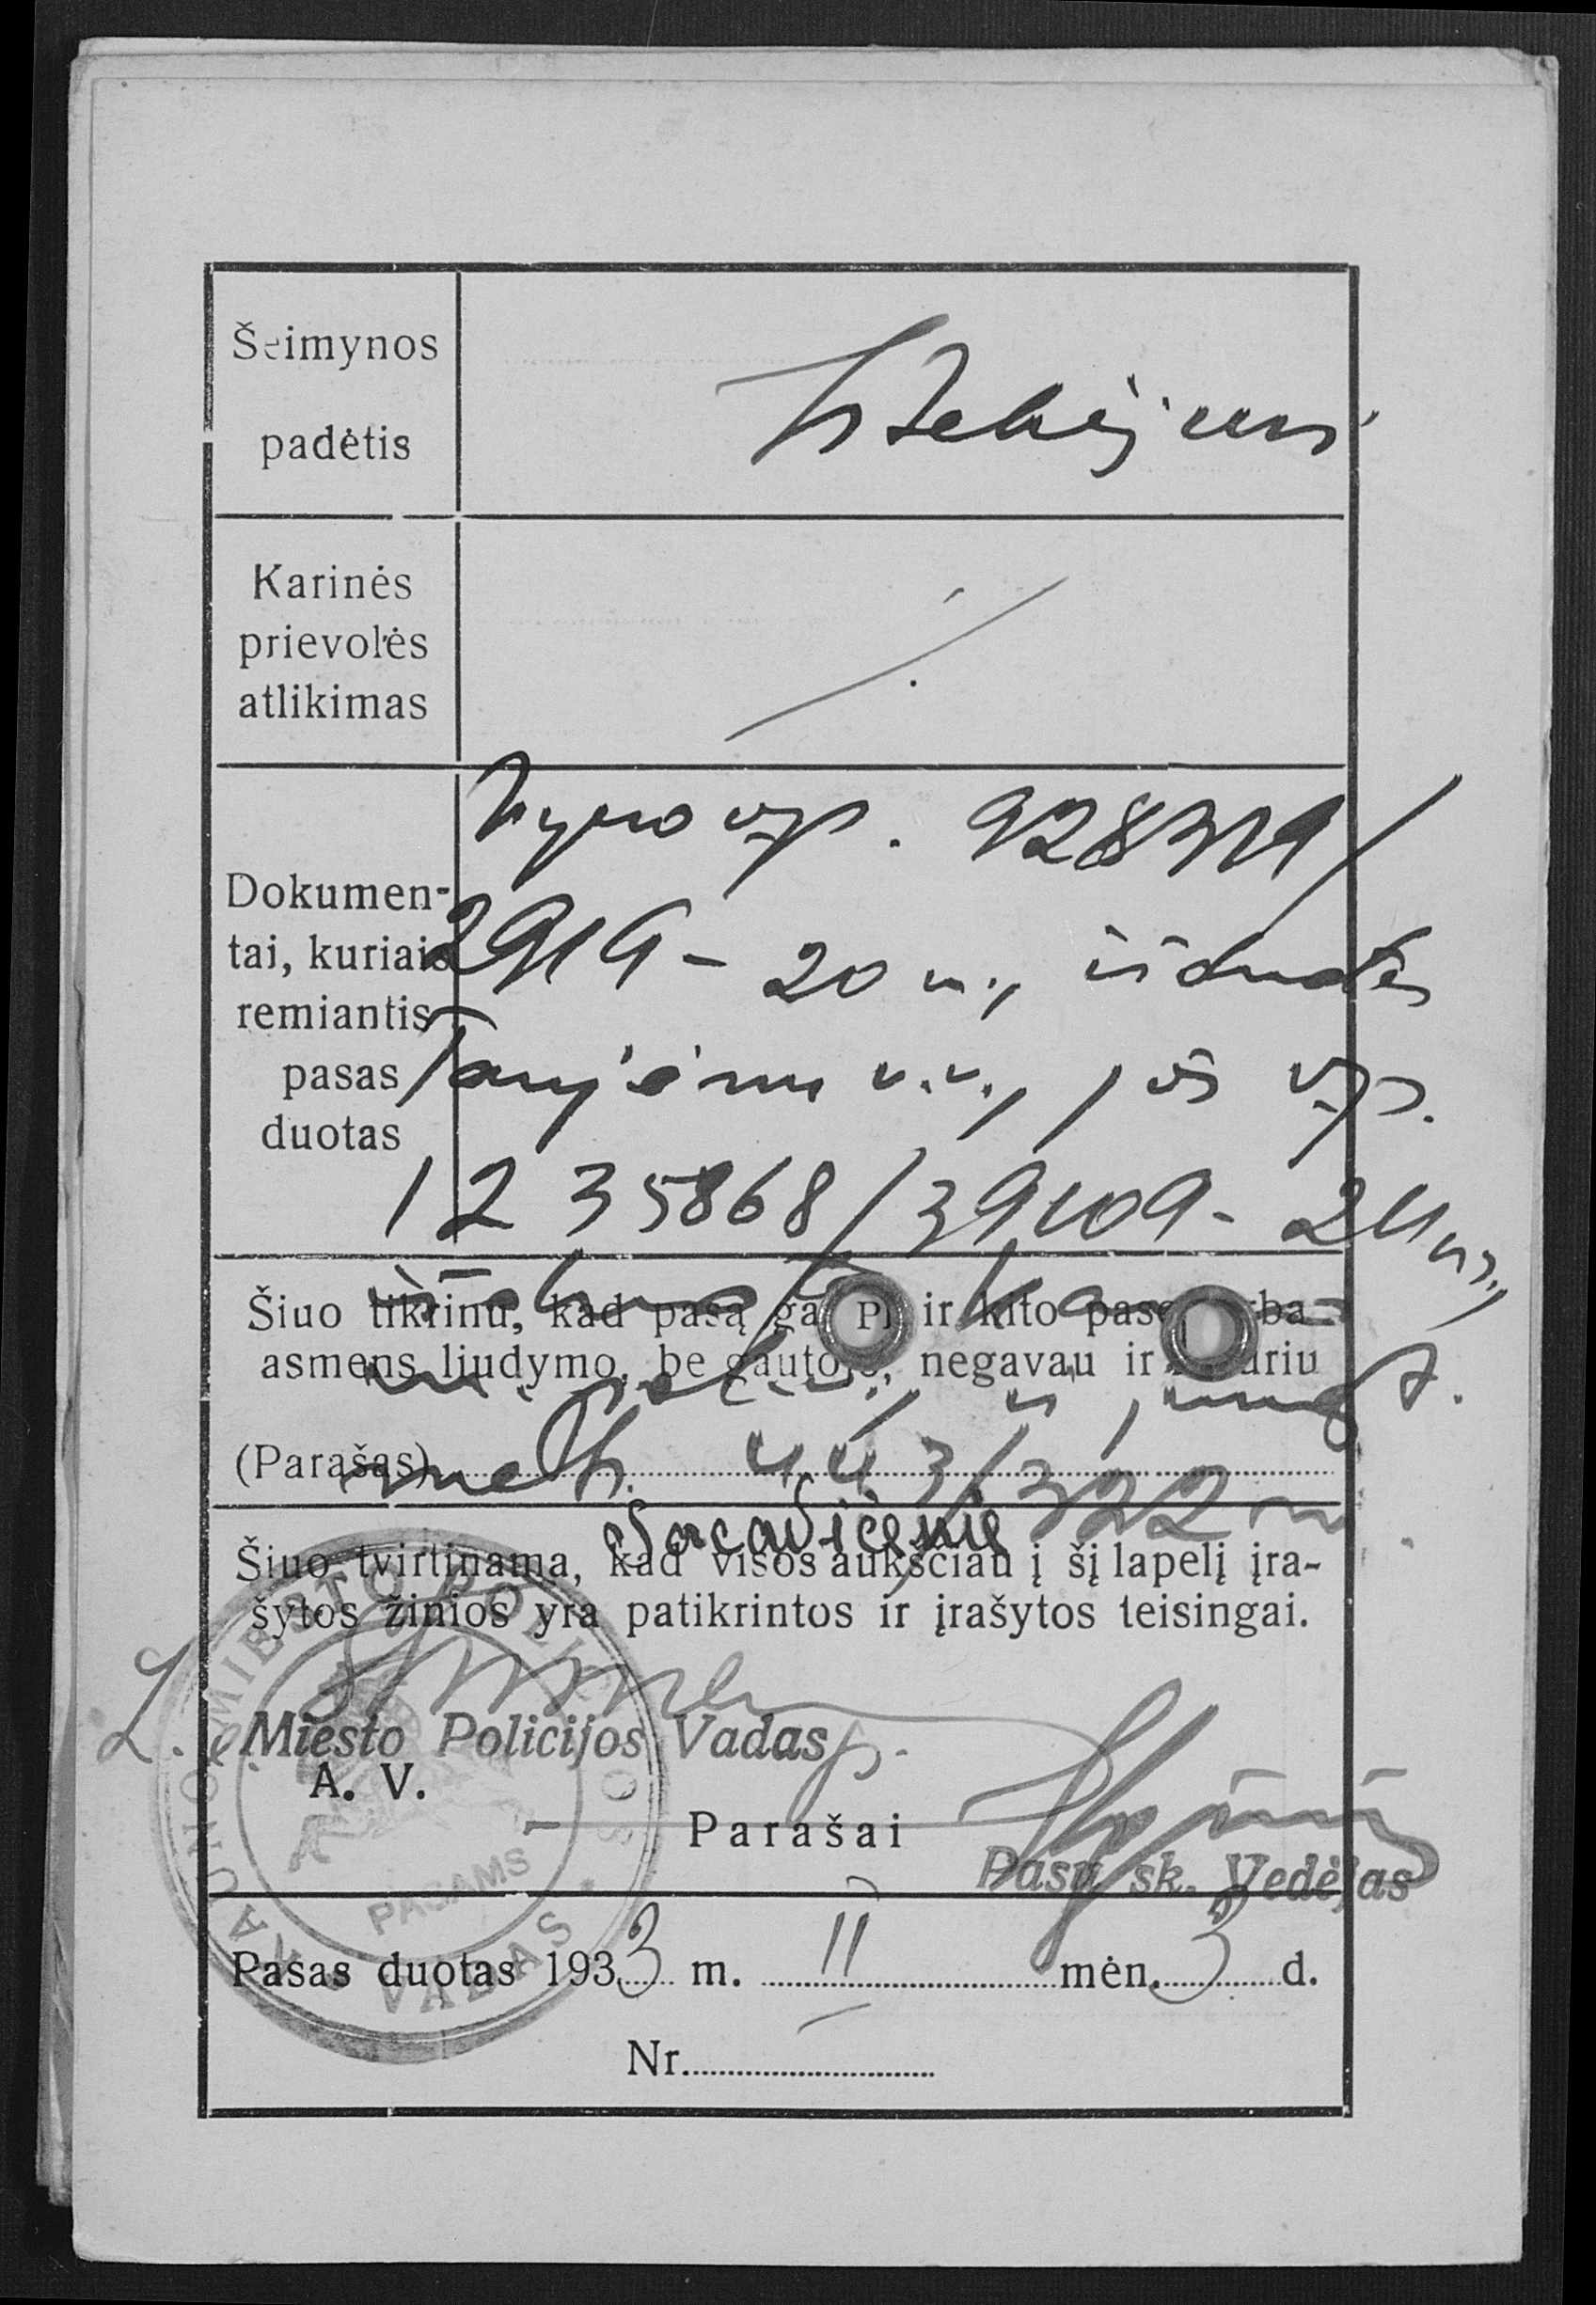 Šeimynos
padėtis
Ištekėjusi
Karinės
prievolės
atlikimas
Dokumen-
tai, kuriais
remiantis
pasas
duotas
Vyro vp. 928319/
2919 - 20 m., išduotas
v.v., jos vp.
1235868/39409 - 24 m.,
Šiuo tikrinu, kad pasą ir kito
asmens liudymo, be negavau ir
(Parašas)
metr. 443/322 m.
Šiuo tvirtinama, kad visos aukščiau į šį lapelį įra-
šytos žinios yra patikrintos ir įrašytos teisingai.
L. e. Miesto Policijos Vadas p.
A. V.
Parašai
Pasų sk. Vedėjas
KAUNO MIESTO POLICIJOS VADAS
PASAMS
Pasas duotas 1933 m. II mėn. 3 d.
Nr.